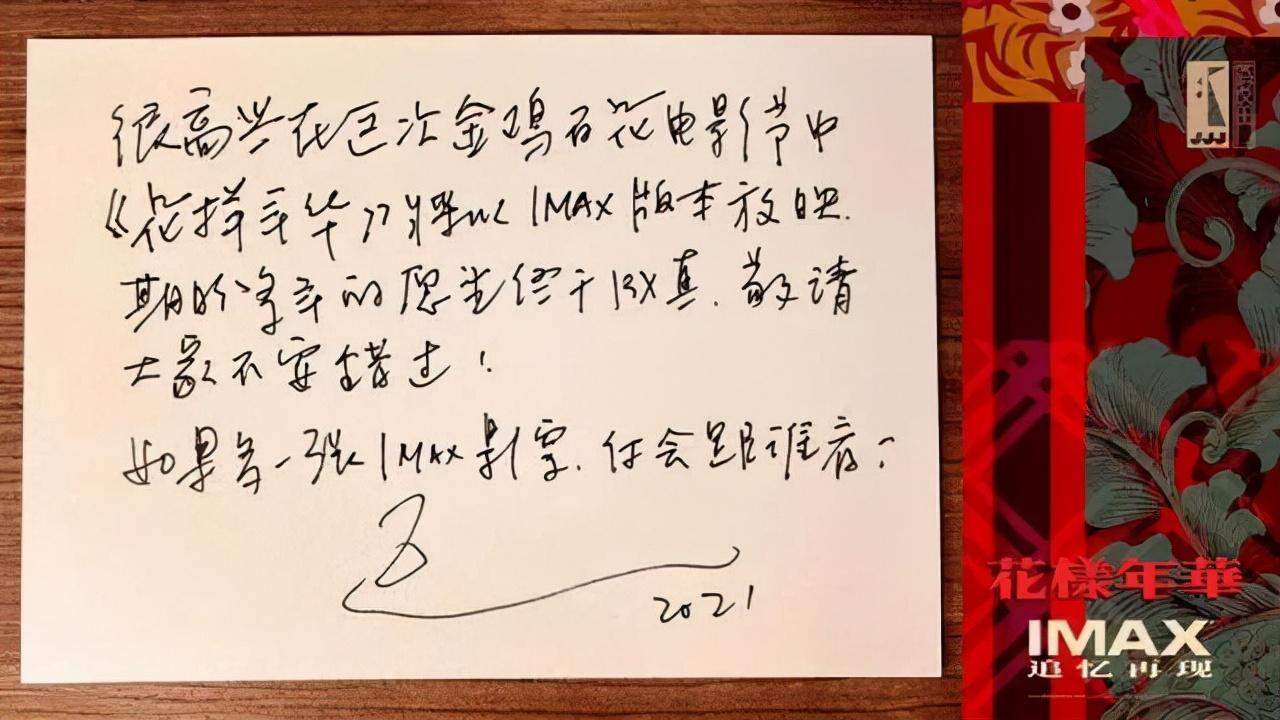 很高兴在这次金鸡百花电影节中
《花样年华》将以IMAX版本放映.
期盼多年的愿望终于成真.敬请
大家不要错过!
如果多一张IMAX影票.你会跟谁看?
2021
花樣年華
IMAX
追忆再现